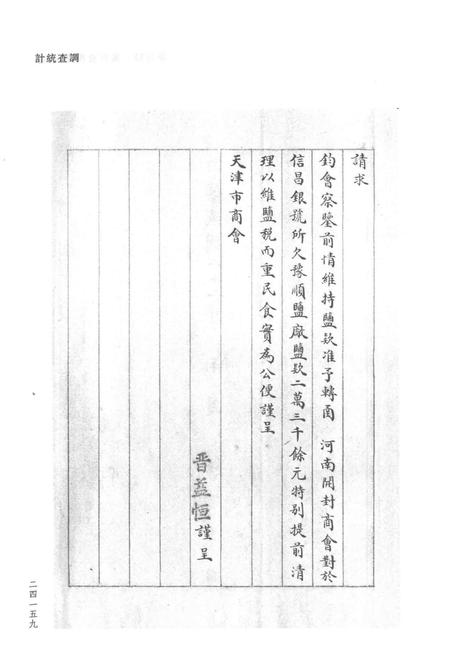 調查統計
請求
鈞會察鑒前情維持鹽款准予轉函 河南開封商會對於
信昌銀號所欠豫順鹽廠鹽款二萬三千餘元特別提前清
理以維鹽稅而重民食實為公便謹呈
天津市商會
晋益恒謹呈
二四一五九